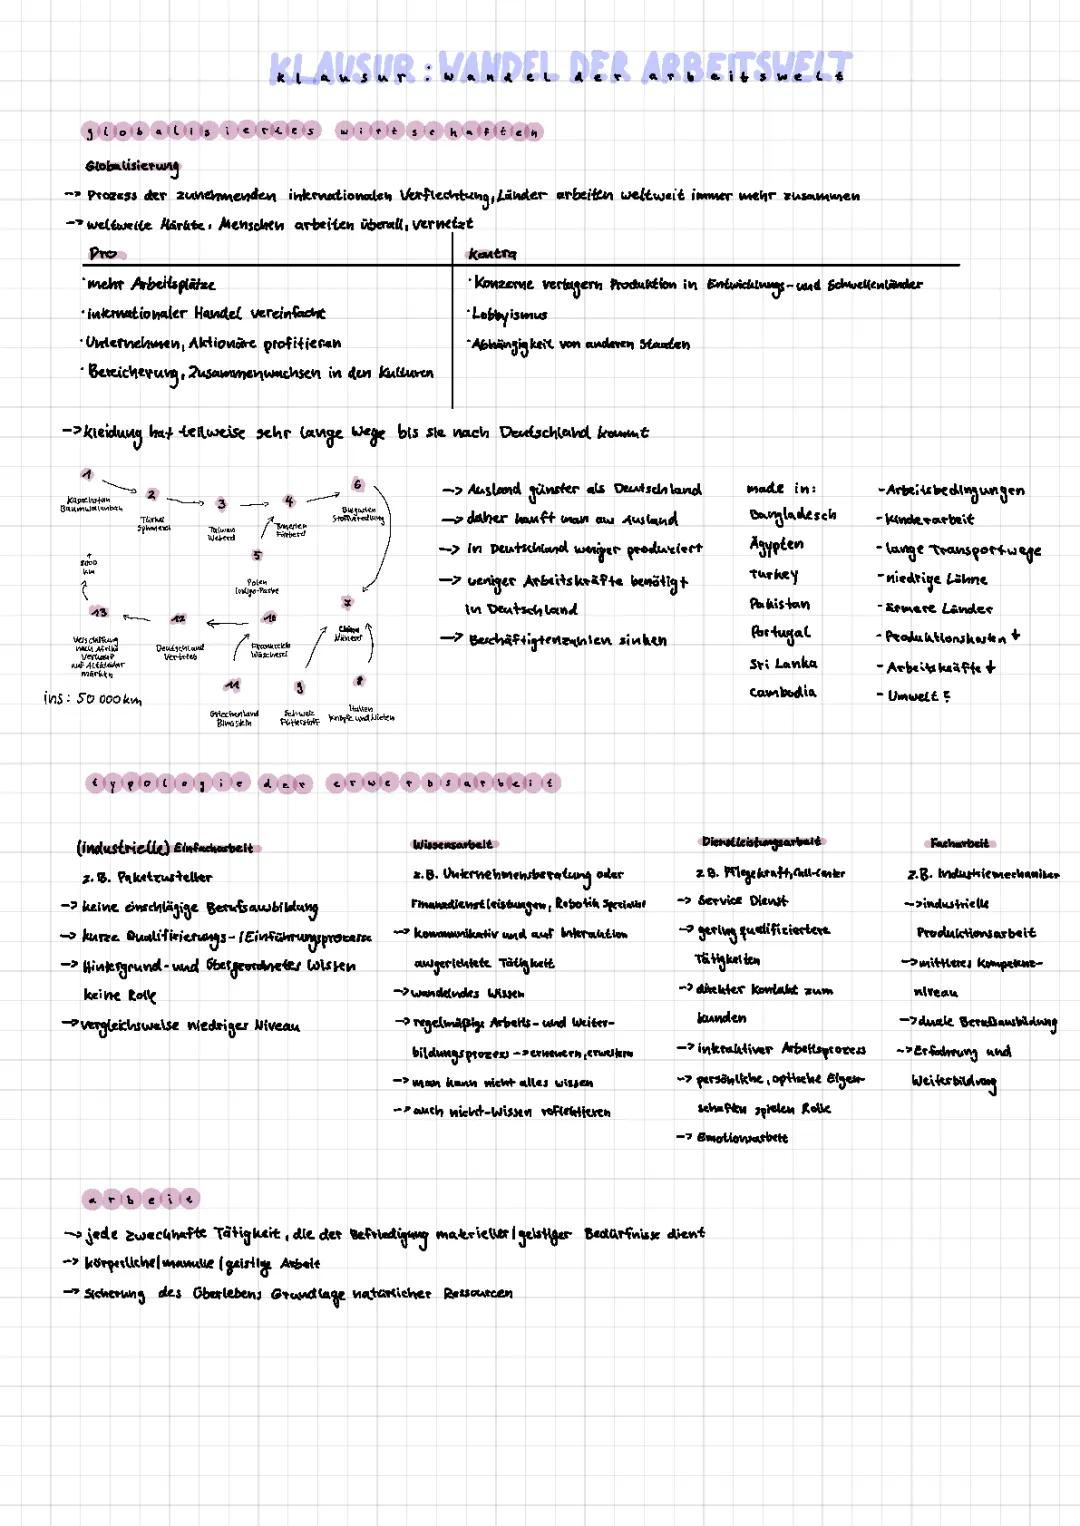 KLAUSUR: WANDEL DER ARBEITSWELT
klausur: wandel der arbeitswelt
globalisiertes wirtschaften
Globalisierung
--> Prozess der zunehmenden internationalen Verflechtung, Länder arbeiten weltweit immer mehr zusammen
--> weltweite Märkte, Menschen arbeiten überall, vernetzt
Pro
Kontra
· mehr Arbeitsplätze
· internationaler Handel vereinfacht
· Unternehmen, Aktionäre profitieren
· Bereicherung, Zusammenwachsen in den Kulturen
· Konzerne verlagern Produktion in Entwicklungs- und Schwellenländer
· Lobbyismus
· Abhängigkeit von anderen Staaten
--> Kleidung hat teilweise sehr lange Wege bis sie nach Deutschland kommt
1
Kapachstan
2
Türkei
Spinnerei
3
Taiwan
Weberei
4
Färberei
5
Polen
Indigo-Farbe
6
Bulgarien
Stoffveredlung
7
China
Näherei
8
Italien
Knöpfe und Nieten
9
Schweiz
Futterstoff
10
Frankreich
Wäscherei
11
Griechenland
Bimsstein
12
Deutschland
Vertrieb
13
Verschiffung
nach Afrika
Verkauf
auf Altkleider
märkten
8000
km
ins: 50 000 km
--> Ausland günster als Deutschland
--> daher kauft man aus Ausland
--> in Deutschland weniger produziert
--> weniger Arbeitskräfte benötigt
in Deutschland
--> Beschäftigtenzahlen sinken
made in:
Bangladesch
Ägypten
Turkey
Pakistan
Portugal
Sri Lanka
Cambodia
- Arbeitsbedingungen
- Kinderarbeit
- lange Transportwege
- niedrige Löhne
- ärmere Länder
- Produktionskosten ↓
- Arbeitskräfte ↓
- Umwelt
typologie der erwerbsarbeit
(industrielle) Einfacharbeit
z.B. Paketzusteller
--> keine einschlägige Berufsausbildung
--> kurze Qualifizierungs-/Einführungsprozesse
--> Hintergrund- und übergeordnetes Wissen
keine Rolle
--> vergleichsweise niedriges Niveau
Wissensarbeit
z.B. Unternehmensberatung oder
Finanzdienstleistungen, Robotik Spezialist
--> kommunikativ und auf Interaktion
ausgerichtete Tätigkeit
--> wandelndes Wissen
--> regelmäßige Arbeits- und Weiter-
bildungsprozess --> erneuern, erweitern
--> man kann nicht alles wissen
--> auch nicht-Wissen reflektieren
Dienstleistungsarbeit
z.B. Pflegekraft, Call-Center
--> Service Dienst
--> gering qualifiziertere
Tätigkeiten
--> direkter Kontakt zum
kunden
--> interaktiver Arbeitsprozess
--> persönliche, optische Eigen-
schaften spielen Rolle
--> Emotionsarbeit
Facharbeit
z.B. Industriemechaniker
--> industrielle
Produktionsarbeit
--> mittleres Kompetenz-
niveau
--> duale Berufsausbildung
--> Erfahrung und
Weiterbildung
arbeit
--> jede zweckhafte Tätigkeit, die der Befriedigung materieller/geistiger Bedürfnisse dient
--> körperliche/manuelle/geistige Arbeit
--> Sicherung des Überlebens Grundlage natürlicher Ressourcen